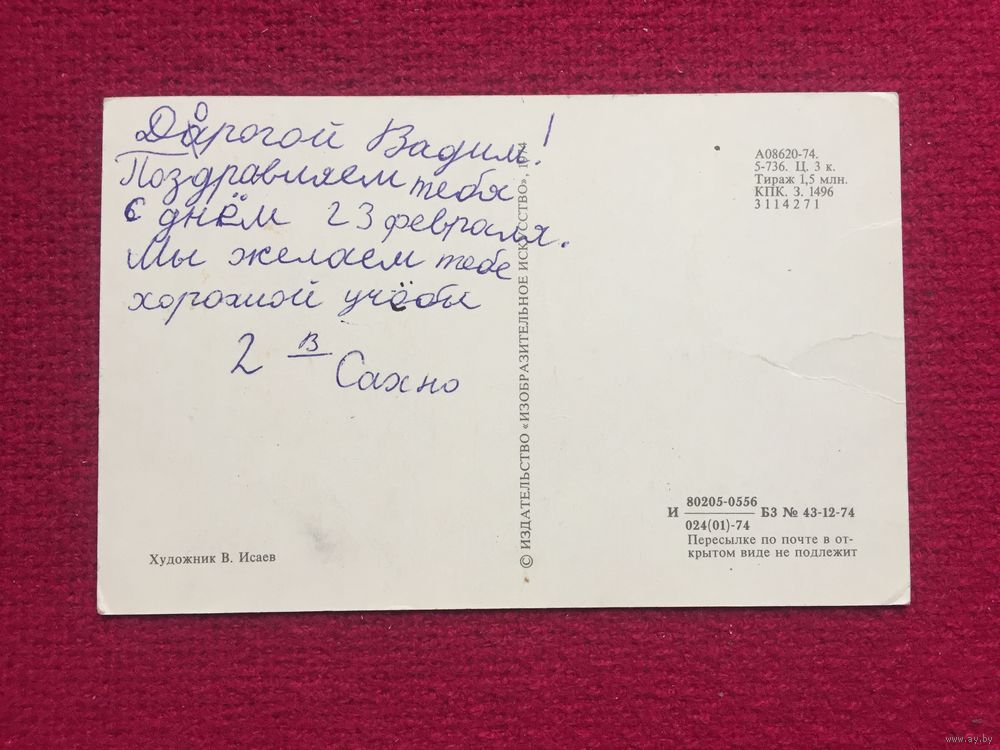 Дорогой Вадим!
Поздравляем тебя
с днём 23 февраля.
Мы желаем тебе
хорошой учёбы
2 В Сахно
Художник В. Исаев
© ИЗДАТЕЛЬСТВО «ИЗОБРАЗИТЕЛЬНОЕ ИСКУССТВО», 1974
А08620-74.
5-736. Ц. 3 к.
Тираж 1,5 млн.
КПК. З. 1496
3114271
80205-0556
И БЗ № 43-12-74
024(01)-74
Пересылке по почте в от-
крытом виде не подлежит
www.ay.by